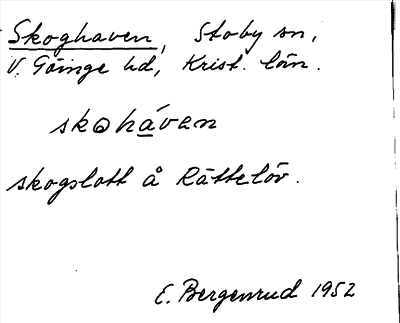 Skoghaven, Stoby sn,
V. Göinge hd, Krist. län.
skoháven
skogslott å Rättelöv.
E. Bergenrud 1952